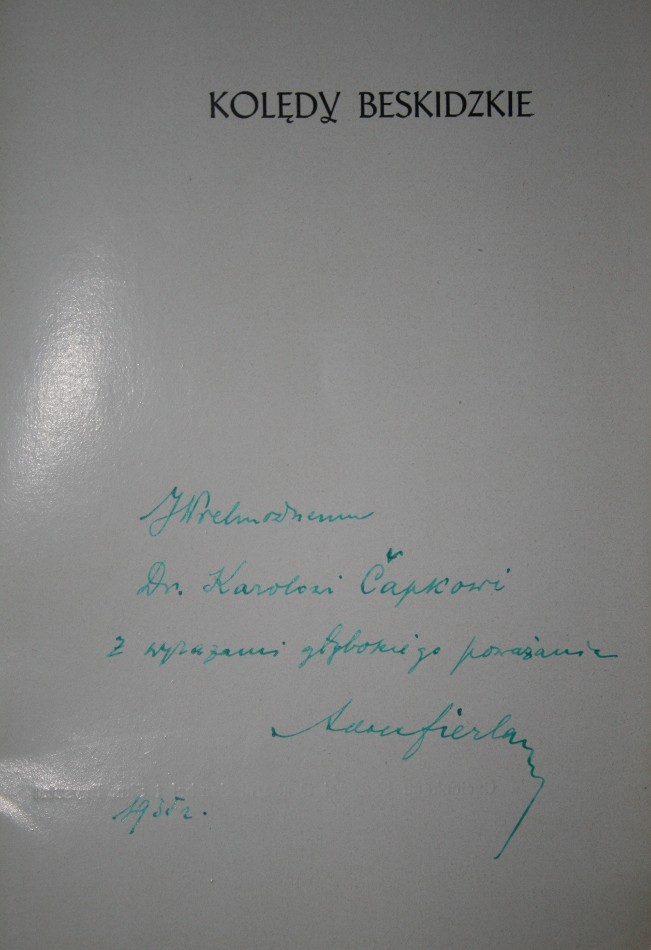 KOLĘDY BESKIDZKIE
JWielmożnemu
Dr. Karolowi Čapkowi
z wyrazami głębokiego poważania
Adam Fierla
1935 r.